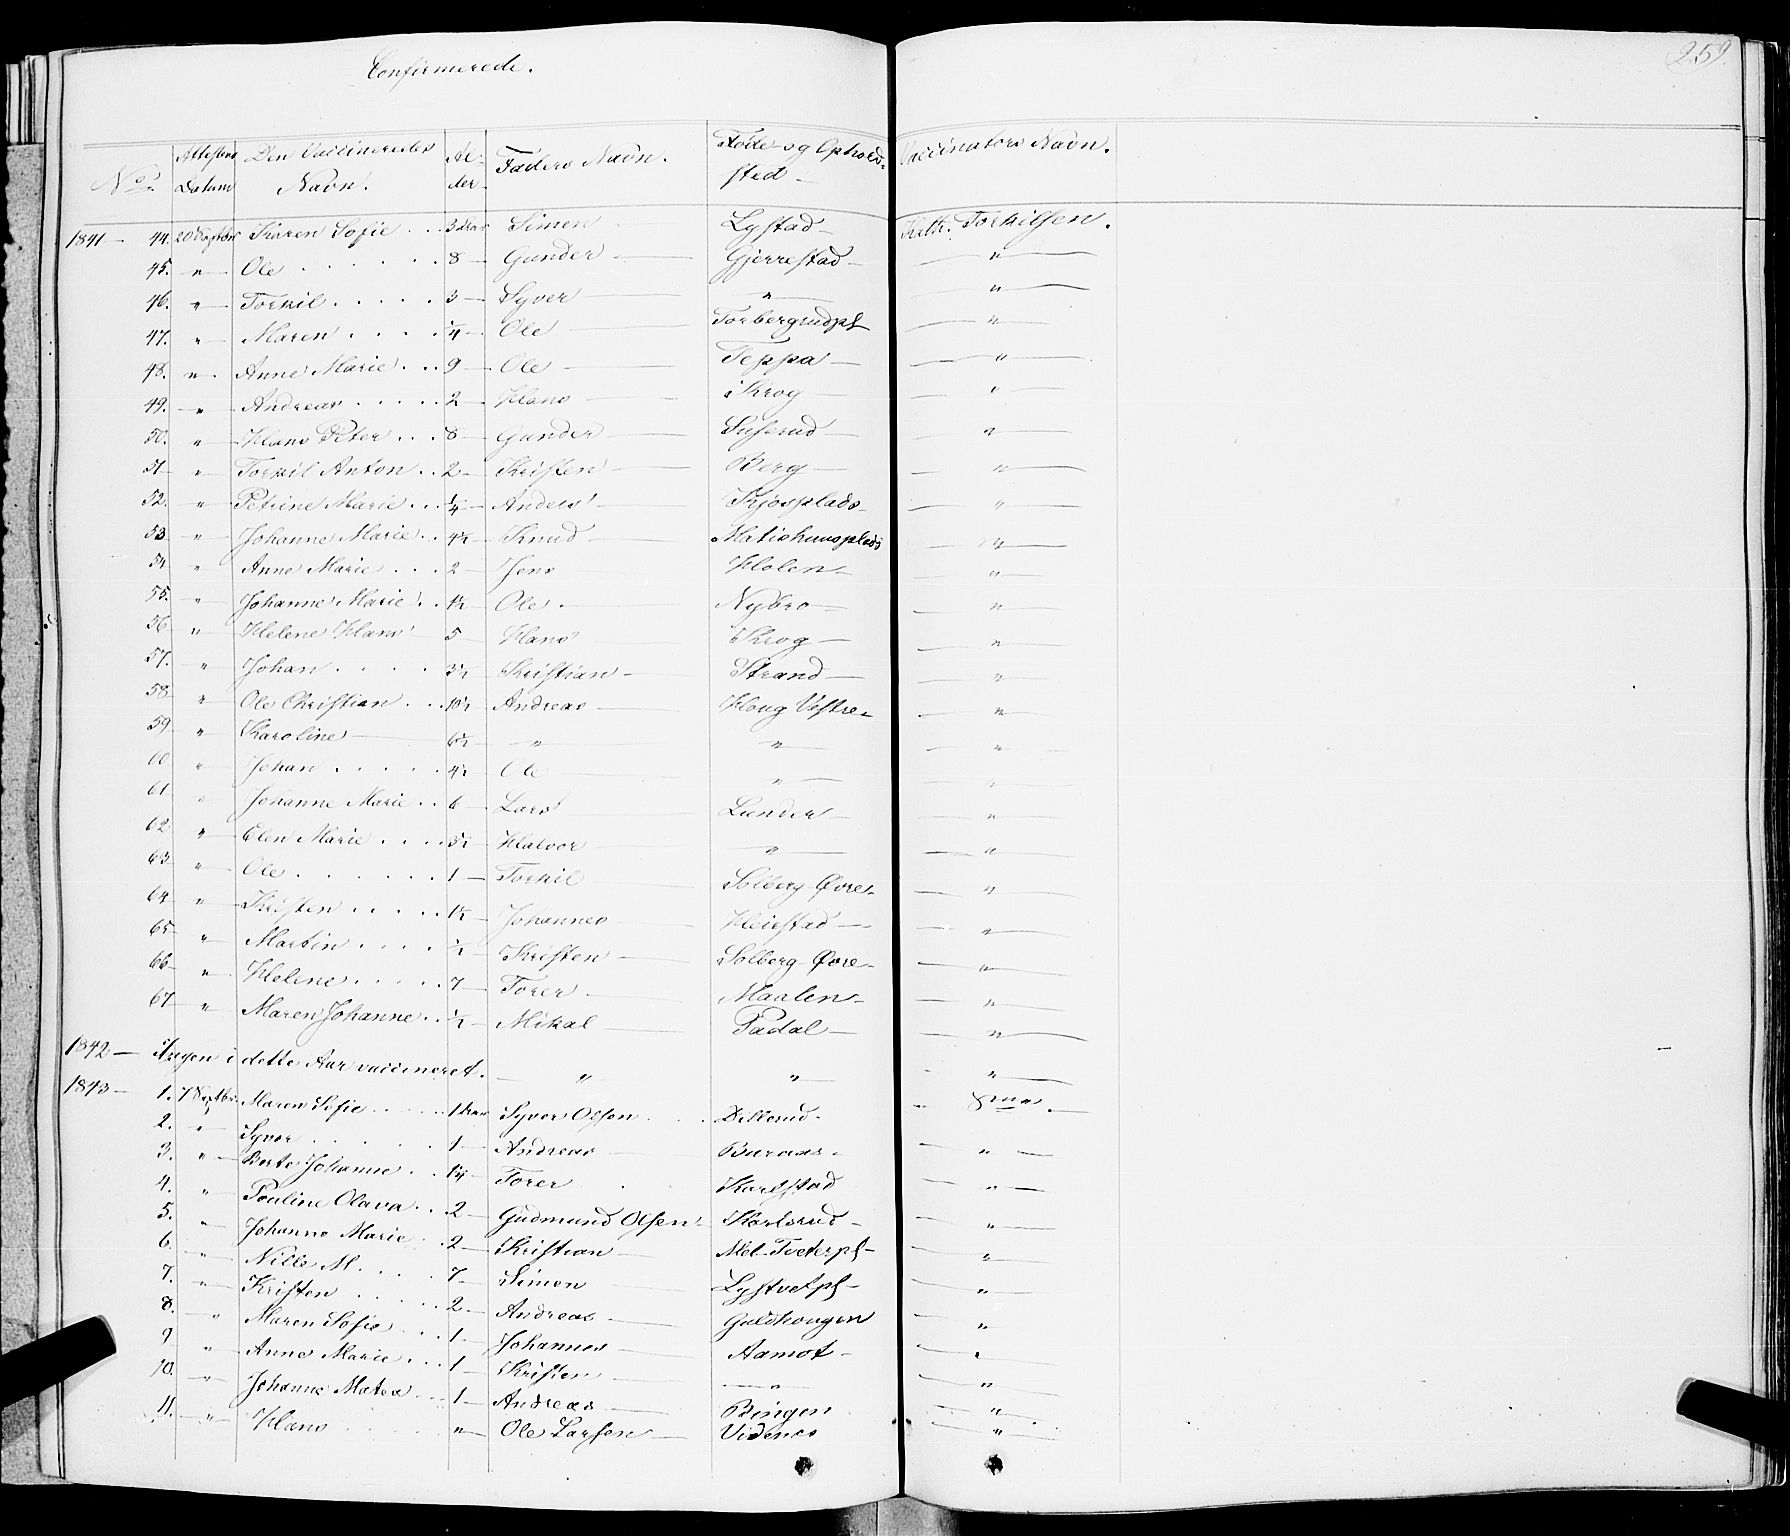 Confirmerede.
259.
No. Attestens Datum Den Vaccineredes Navn. Al-der- Faders Navn. Føde og Opholds-sted Vaccinators Navn.
1841 — 44. 20 Septbr Karen Sofie . . . 3 Aar Simen Lystad — Kath. Torkilsen.
45. " Ole . . . . . . 8 — Gunder — Gjerrestad — "
46. " Torkil . . . . . 3 — Syver " "
47. " Maren . . . . 1/4 — Ole Torbergrudpl "
48. " Anne Marie . . . 9 — Ole — Teppa — "
49. " Andreas . . . . . 2 — Hans Krog — "
50. " Hans Peter . . . 8 — Gunder — Suserud — "
51 — " Torkil Anton . . 2 — Kristen — Berg — "
52. " Petrine Marie . . . 1/4 — Anders Kjosplads — "
53 " Johanne Marie . . 4 1/2 — Knud — Matishuusplads "
54 " Anne Marie . . . 2 — Jens Holen — "
55. " Johanne Marie . . 1 1/2 — Ole . — Nybro — "
56 " Helene Hans — 5 — Hans Krog — "
57. " Johan . . . . . 3 1/2 — Kristian — Strand — "
58 " Ole Christian . . . 10 1/2 — Andreas — Houg Vestre — "
59 " Karoline — 6 1/2 — " " "
60 " Johan . . . . . 4 1/2 — Ole " "
61 " Johanne Marie . . 6 — Lars Lunder — "
62 " Elen Marie . . . . 3 1/2 — Halvor " "
63 " Ole . . . . . . 1 — Torkil Solberg Øvre — "
64 " Kristen . . . . . 1 1/2 — Johannes — Heiestad — "
65 " Martin . . . . . 1/2 — Kristen — Solberg Øvre — "
66 — " Helene . . . . . 7 — Torer — Maalen — "
67 " Maren Johanne . . 1/2 — Mikal — Padal — "
1842 — Ingen i dette Aar vaccineret. — " " "
1843 — 1. 7 Septbr. Maren Sofie . . . . . 1 Aar Syver Olsen . . . Dillerud — Sma.
2. " Syver . . . . . . 1 — Andreas — Buraas — "
3. " Berte Johanne . . 1 1/4 — Torer Karlstad "
4. " Pouline Olava . . 2 — Gudmund Olsen — Karlsrud — "
5. " Johanne Marie . . 2 — Kristian — Mel. Tveterpl — "
6. " Nille M. . . . . 7 — Simen Lystvetpl — "
7. " Kristen . . . . . 2 — Andreas — Guldhougen "
8. " Maren Sofie . . . 1 — Johannes Aamot — "
9 " Anne Marie . . . . 1 — Kristen — " "
10. " Johanne Matea . . . 1 — Andreas — Bingen "
11. " Hans . . . . . " Ole Larsen — Videnes "